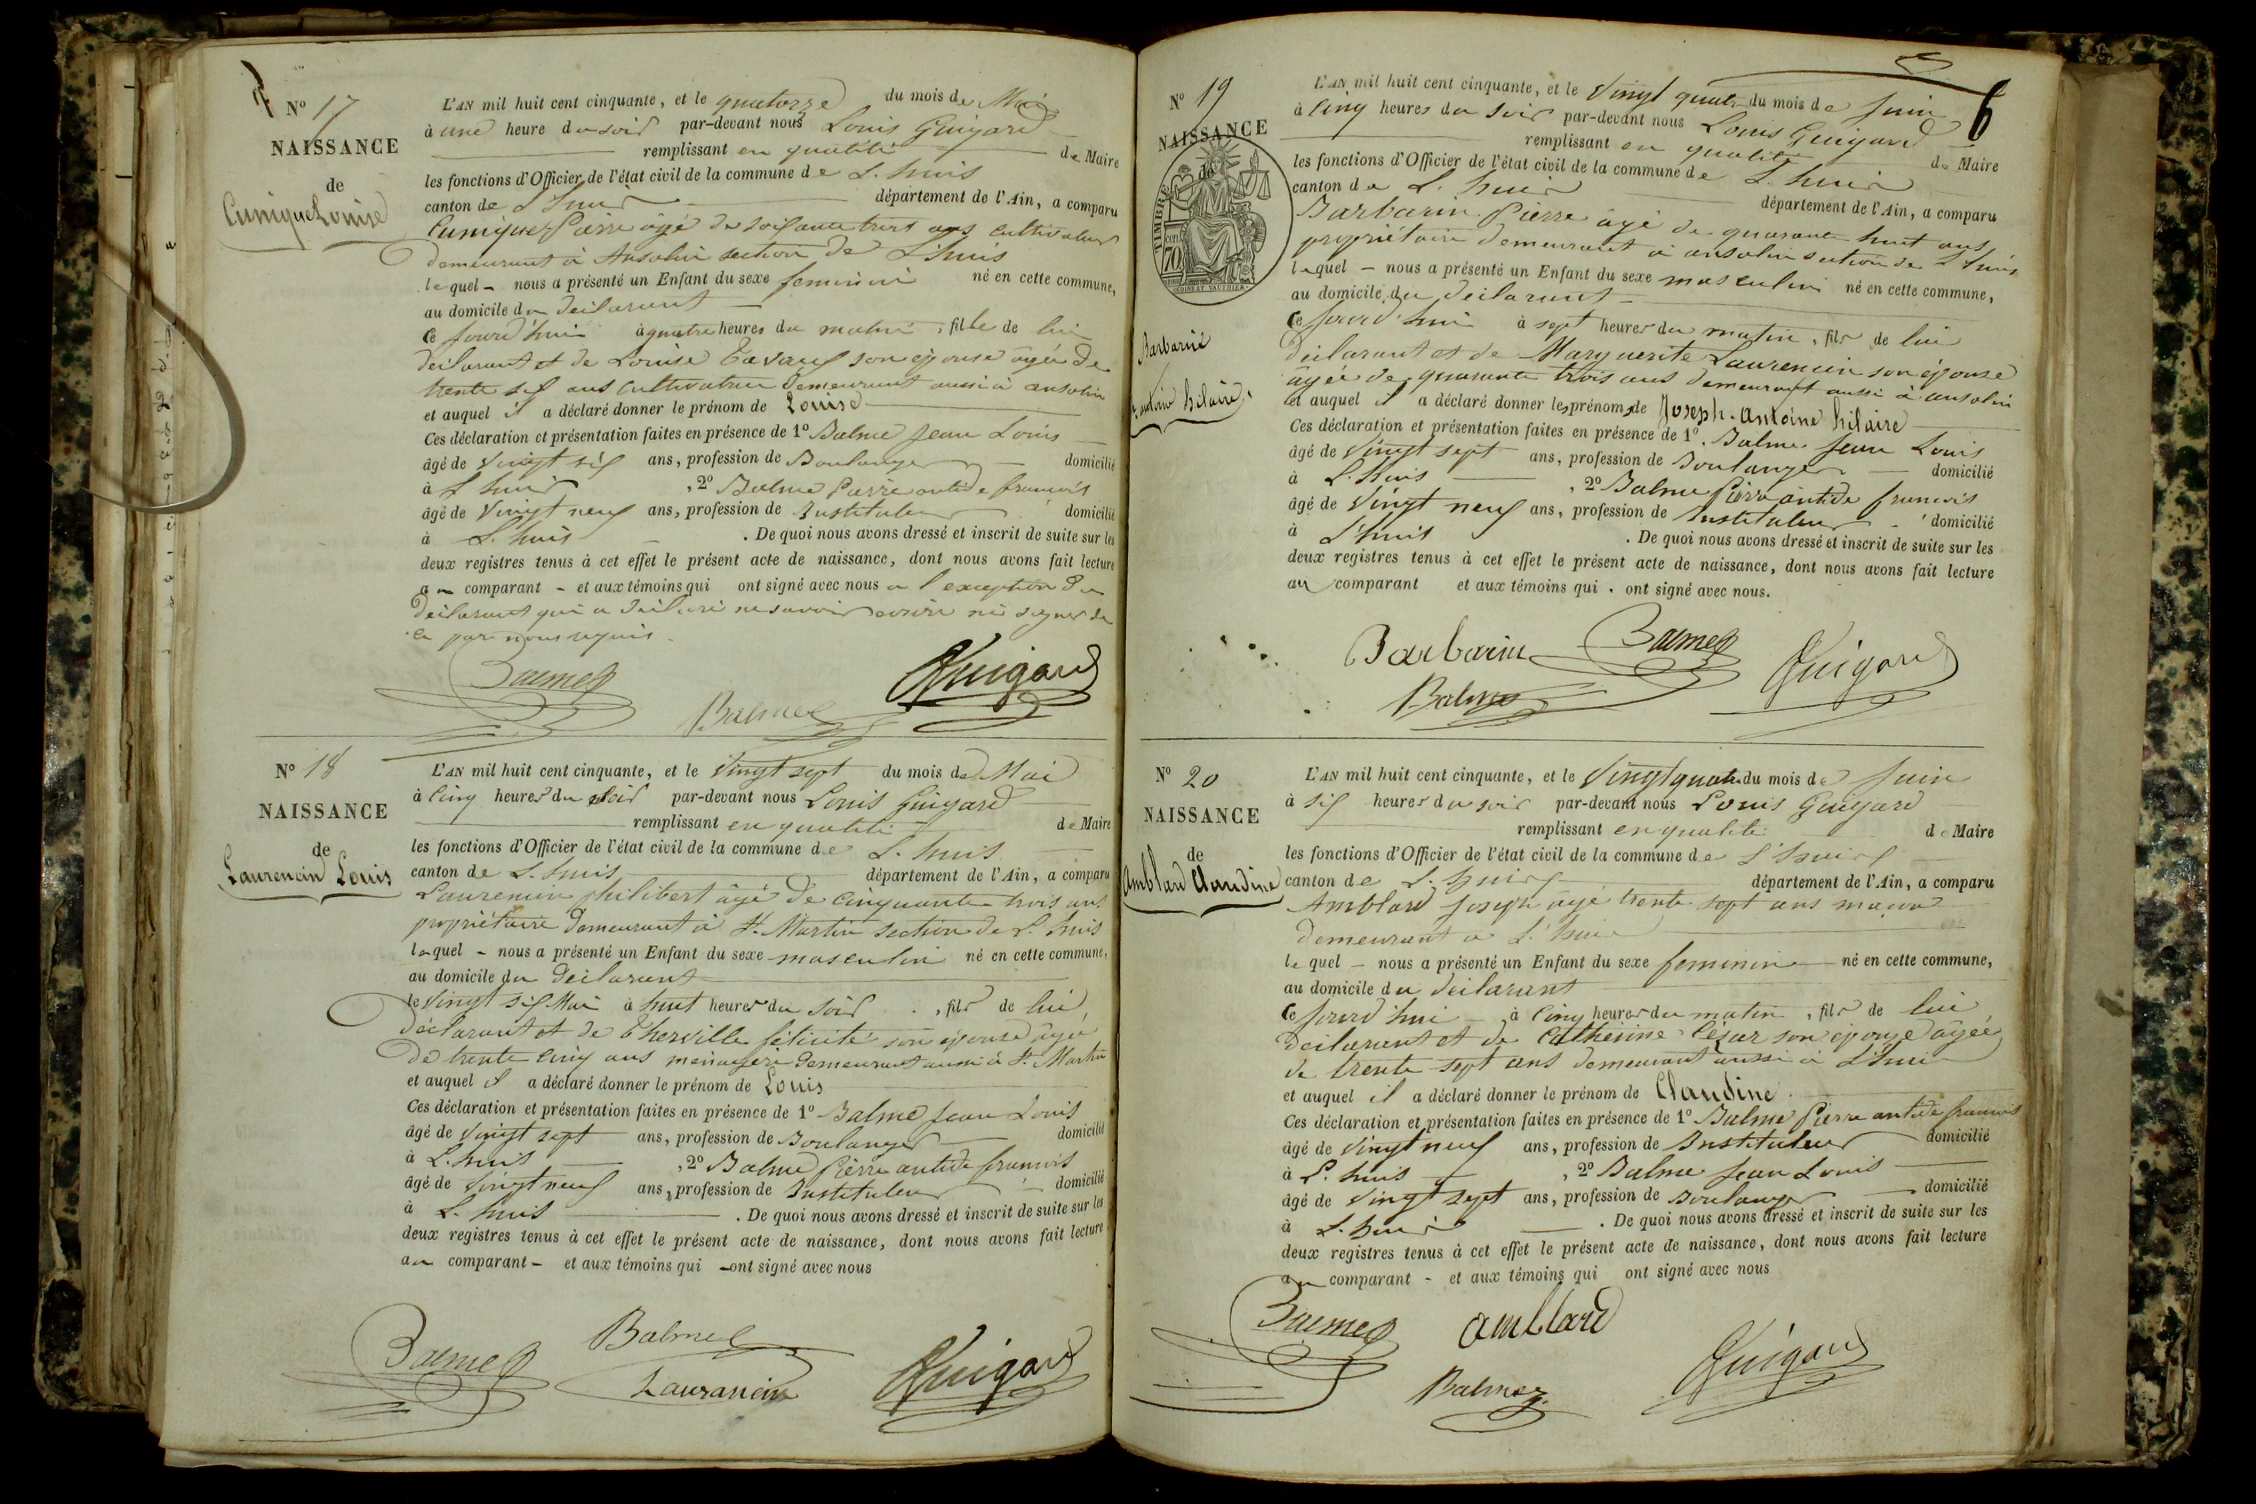 N° 17
NAISSANCE
de
Cunique Louise
L'AN mil huit cent cinquante, et le quatorze du mois de Mai
à une heure du soir par-devant nous Louis Guigard
remplissant en qualité de Maire
les fonctions d'Officier de l'état civil de la commune de L'huis
canton de L'huis département de l'Ain, a comparu
Pierre âgé de soixante trois ans cultivateur
demeurant à Ansolin section de L'huis
lequel - nous a présenté un Enfant du sexe feminin né en cette commune,
au domicile du déclarant
Ce jourd'hui à quatre heures du matin, fille de lui
déclarant et de Louise son épouse âgée de
trente six ans cultivatrice demeurant aussi à ansolin
et auquel il a déclaré donner le prénom de Louise
Ces déclaration et présentation faites en présence de 1° Balme Jean Louis
âgé de vingt six ans, profession de Boulanger domicilié
à L'huis, 2° Balme Pierre antide francois
âgé de vingt neuf ans, profession de Instituteur domicilié
à L'huis. De quoi nous avons dressé et inscrit de suite sur les
deux registres tenus à cet effet le présent acte de naissance, dont nous avons fait lecture
au comparant - et aux témoins qui ont signé avec nous a l'exception du
declarant qui a déclaré ne savoir écrire ni signer de
ce par nous requis.
Balme Guigard
Balme
N° 18
NAISSANCE
de
Laurencin Louis
L'AN mil huit cent cinquante, et le vingt sept du mois de Mai
à cinq heures du soir par-devant nous Louis Guigard
remplissant en qualité de Maire
les fonctions d'Officier de l'état civil de la commune de L'huis
canton de L'huis département de l'Ain, a comparu
Laurencin philibert âgé de cinquante trois ans
propriétaire demeurant à St. Martin section de L'huis
lequel - nous a présenté un Enfant du sexe masculin né en cette commune,
au domicile du déclarant
le vingt six Mai à huit heures du soir, fils de lui
déclarant et de Therville félicité son épouse âgée
de trente cinq ans ménagère demeurant aussi à St. Martin
et auquel il a déclaré donner le prénom de Louis
Ces déclaration et présentation faites en présence de 1° Balme Jean Louis
âgé de vingt sept ans, profession de Boulanger domicilié
à L'huis, 2° Balme Pierre antide francois
âgé de vingt neuf ans, profession de Instituteur domicilié
à L'huis. De quoi nous avons dressé et inscrit de suite sur les
deux registres tenus à cet effet le présent acte de naissance, dont nous avons fait lecture
au comparant - et aux témoins qui - ont signé avec nous
Balme Balme
Laurancin Guigard
6
N° 19
NAISSANCE
de
TIMBRE
70
Barbarin
antoine hilaire
L'AN mil huit cent cinquante, et le vingt quatre du mois de Juin
à cinq heures du soir par-devant nous Louis Guigard
remplissant en qualité de Maire
les fonctions d'Officier de l'état civil de la commune de L'huis
canton de L'huis département de l'Ain, a comparu
Barbarin Pierre âgé de quarante huit ans
propriétaire demeurant à ansolin section de L'huis
lequel - nous a présenté un Enfant du sexe masculin né en cette commune,
au domicile du déclarant
Ce jourd'hui à sept heures du matin, fils de lui
déclarant et de Marguerite Laurencin son épouse
âgée de quarante trois ans demeurant aussi à ansolin
et auquel il a déclaré donner les prénoms de Joseph-antoine hilaire
Ces déclaration et présentation faites en présence de 1° Balme Jean Louis
âgé de vingt sept ans, profession de Boulanger domicilié
à L'huis, 2° Balme Pierre antide francois
âgé de vingt neuf ans, profession de Instituteur domicilié
à L'huis. De quoi nous avons dressé et inscrit de suite sur les
deux registres tenus à cet effet le présent acte de naissance, dont nous avons fait lecture
au comparant et aux témoins qui ont signé avec nous.
Barbarin Balme Guigard
Balme
N° 20
NAISSANCE
de
Amblard Claudine
L'AN mil huit cent cinquante, et le vingt quatre du mois de Juin
à six heures du soir par-devant nous Louis Guigard
remplissant en qualité de Maire
les fonctions d'Officier de l'état civil de la commune de L'huis
canton de L'huis département de l'Ain, a comparu
Amblard Joseph âgé trente sept ans maçon
demeurant à L'huis
lequel - nous a présenté un Enfant du sexe feminin né en cette commune,
au domicile du déclarant
Ce jourd'hui à cinq heures du matin, fils de lui
déclarant et de Catherine César son épouse âgée
de trente sept ans demeurant aussi à L'huis
et auquel il a déclaré donner le prénom de Claudine
Ces déclaration et présentation faites en présence de 1° Balme Pierre antide francois
âgé de vingt neuf ans, profession de Instituteur domicilié
à L'huis, 2° Balme Jean Louis
âgé de vingt sept ans, profession de Boulanger domicilié
à L'huis. De quoi nous avons dressé et inscrit de suite sur les
deux registres tenus à cet effet le présent acte de naissance, dont nous avons fait lecture
au comparant - et aux témoins qui ont signé avec nous
Balme amblard
Balme Guigard